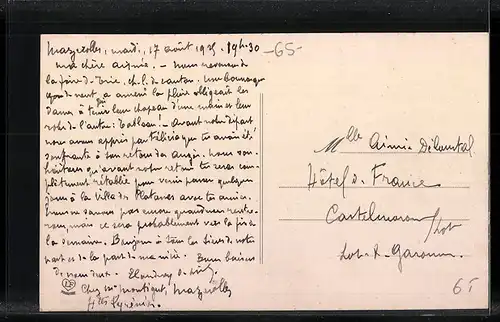 Mazerolles, mardi, 17 août 1925 19h30 -65-
ma chère Aimée. - nous revenons de
la foire de Trie, ch. l. de canton. Une bourrasque
de vent, qui a amené la pluie obligeait les
dames à tenir leur chapeau d'une main et leur
robe de l'autre: Tableau! - Avant notre départ
nous avons appris par Félicia que tu avais été
souffrante à son retour du
haitons qu'avant notre retour tu seras com-
plètement rétablie pour venir passer quelques
jours à la Villa des Platanes avec tes amies.
nous ne savons pas encore quand nous rentre-
rons, mais ce sera probablement vers la fin de
la semaine. Bonjour à tous les tiens de notre
part et de la part de ma mère. Bons baisers
de nous deux.
Chez Mme Montégut, Mazerolles
Htes Pyrénées.
Mlle Aimée
Hôtel de France
Castelmoron s/Lot
Lot-&-Garonne
65